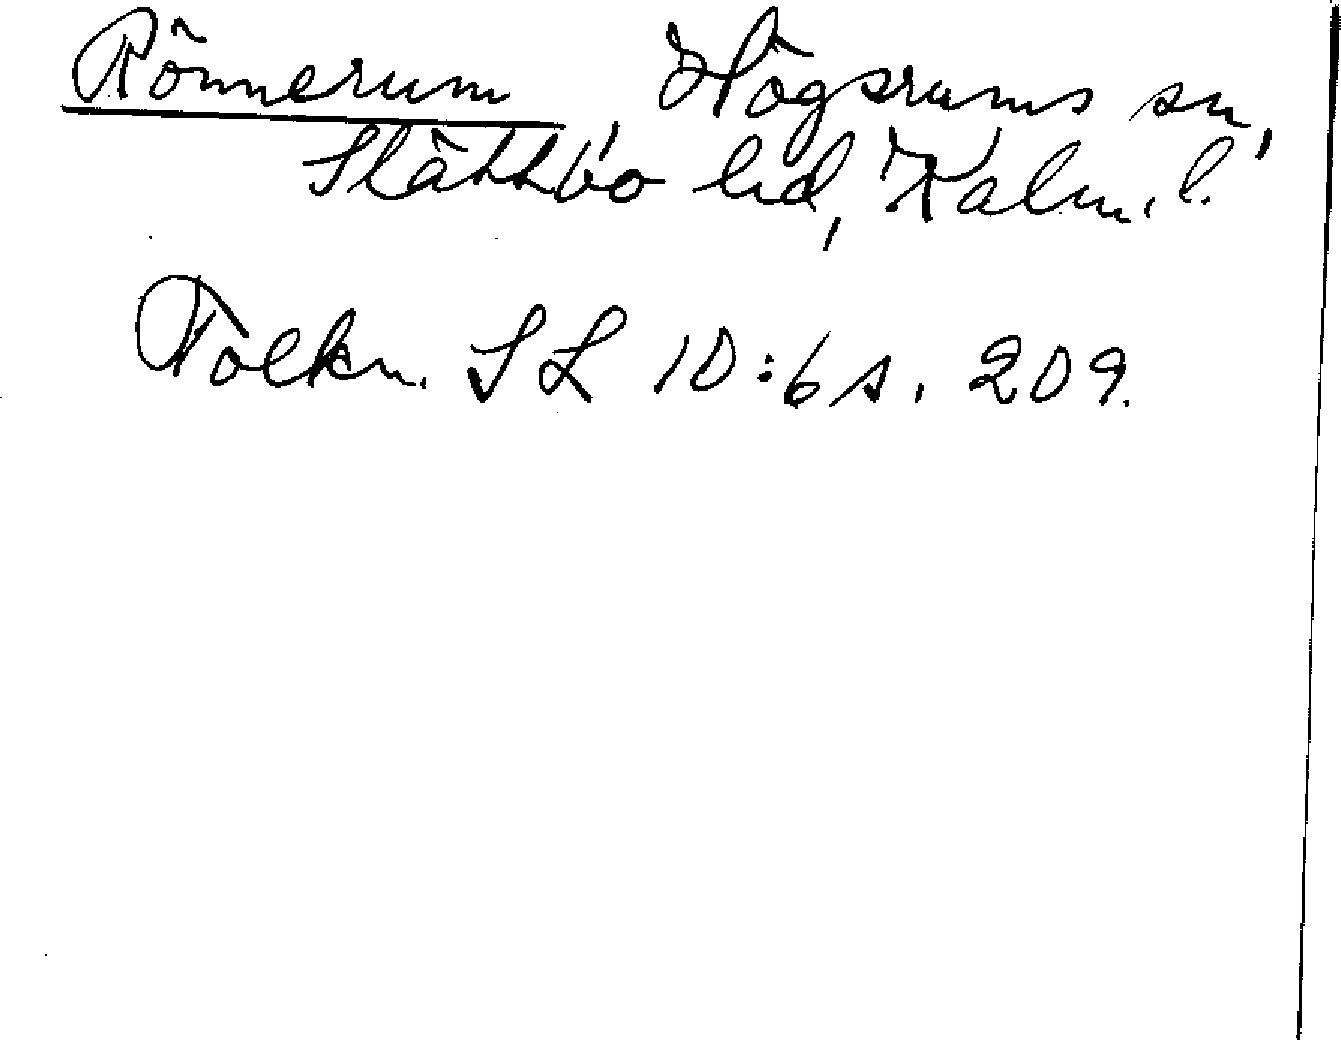 Rönnerum, Högsrums sn,
Slättbo hd, Kalm. l.
Tolkn. SL 10:6 s. 209.